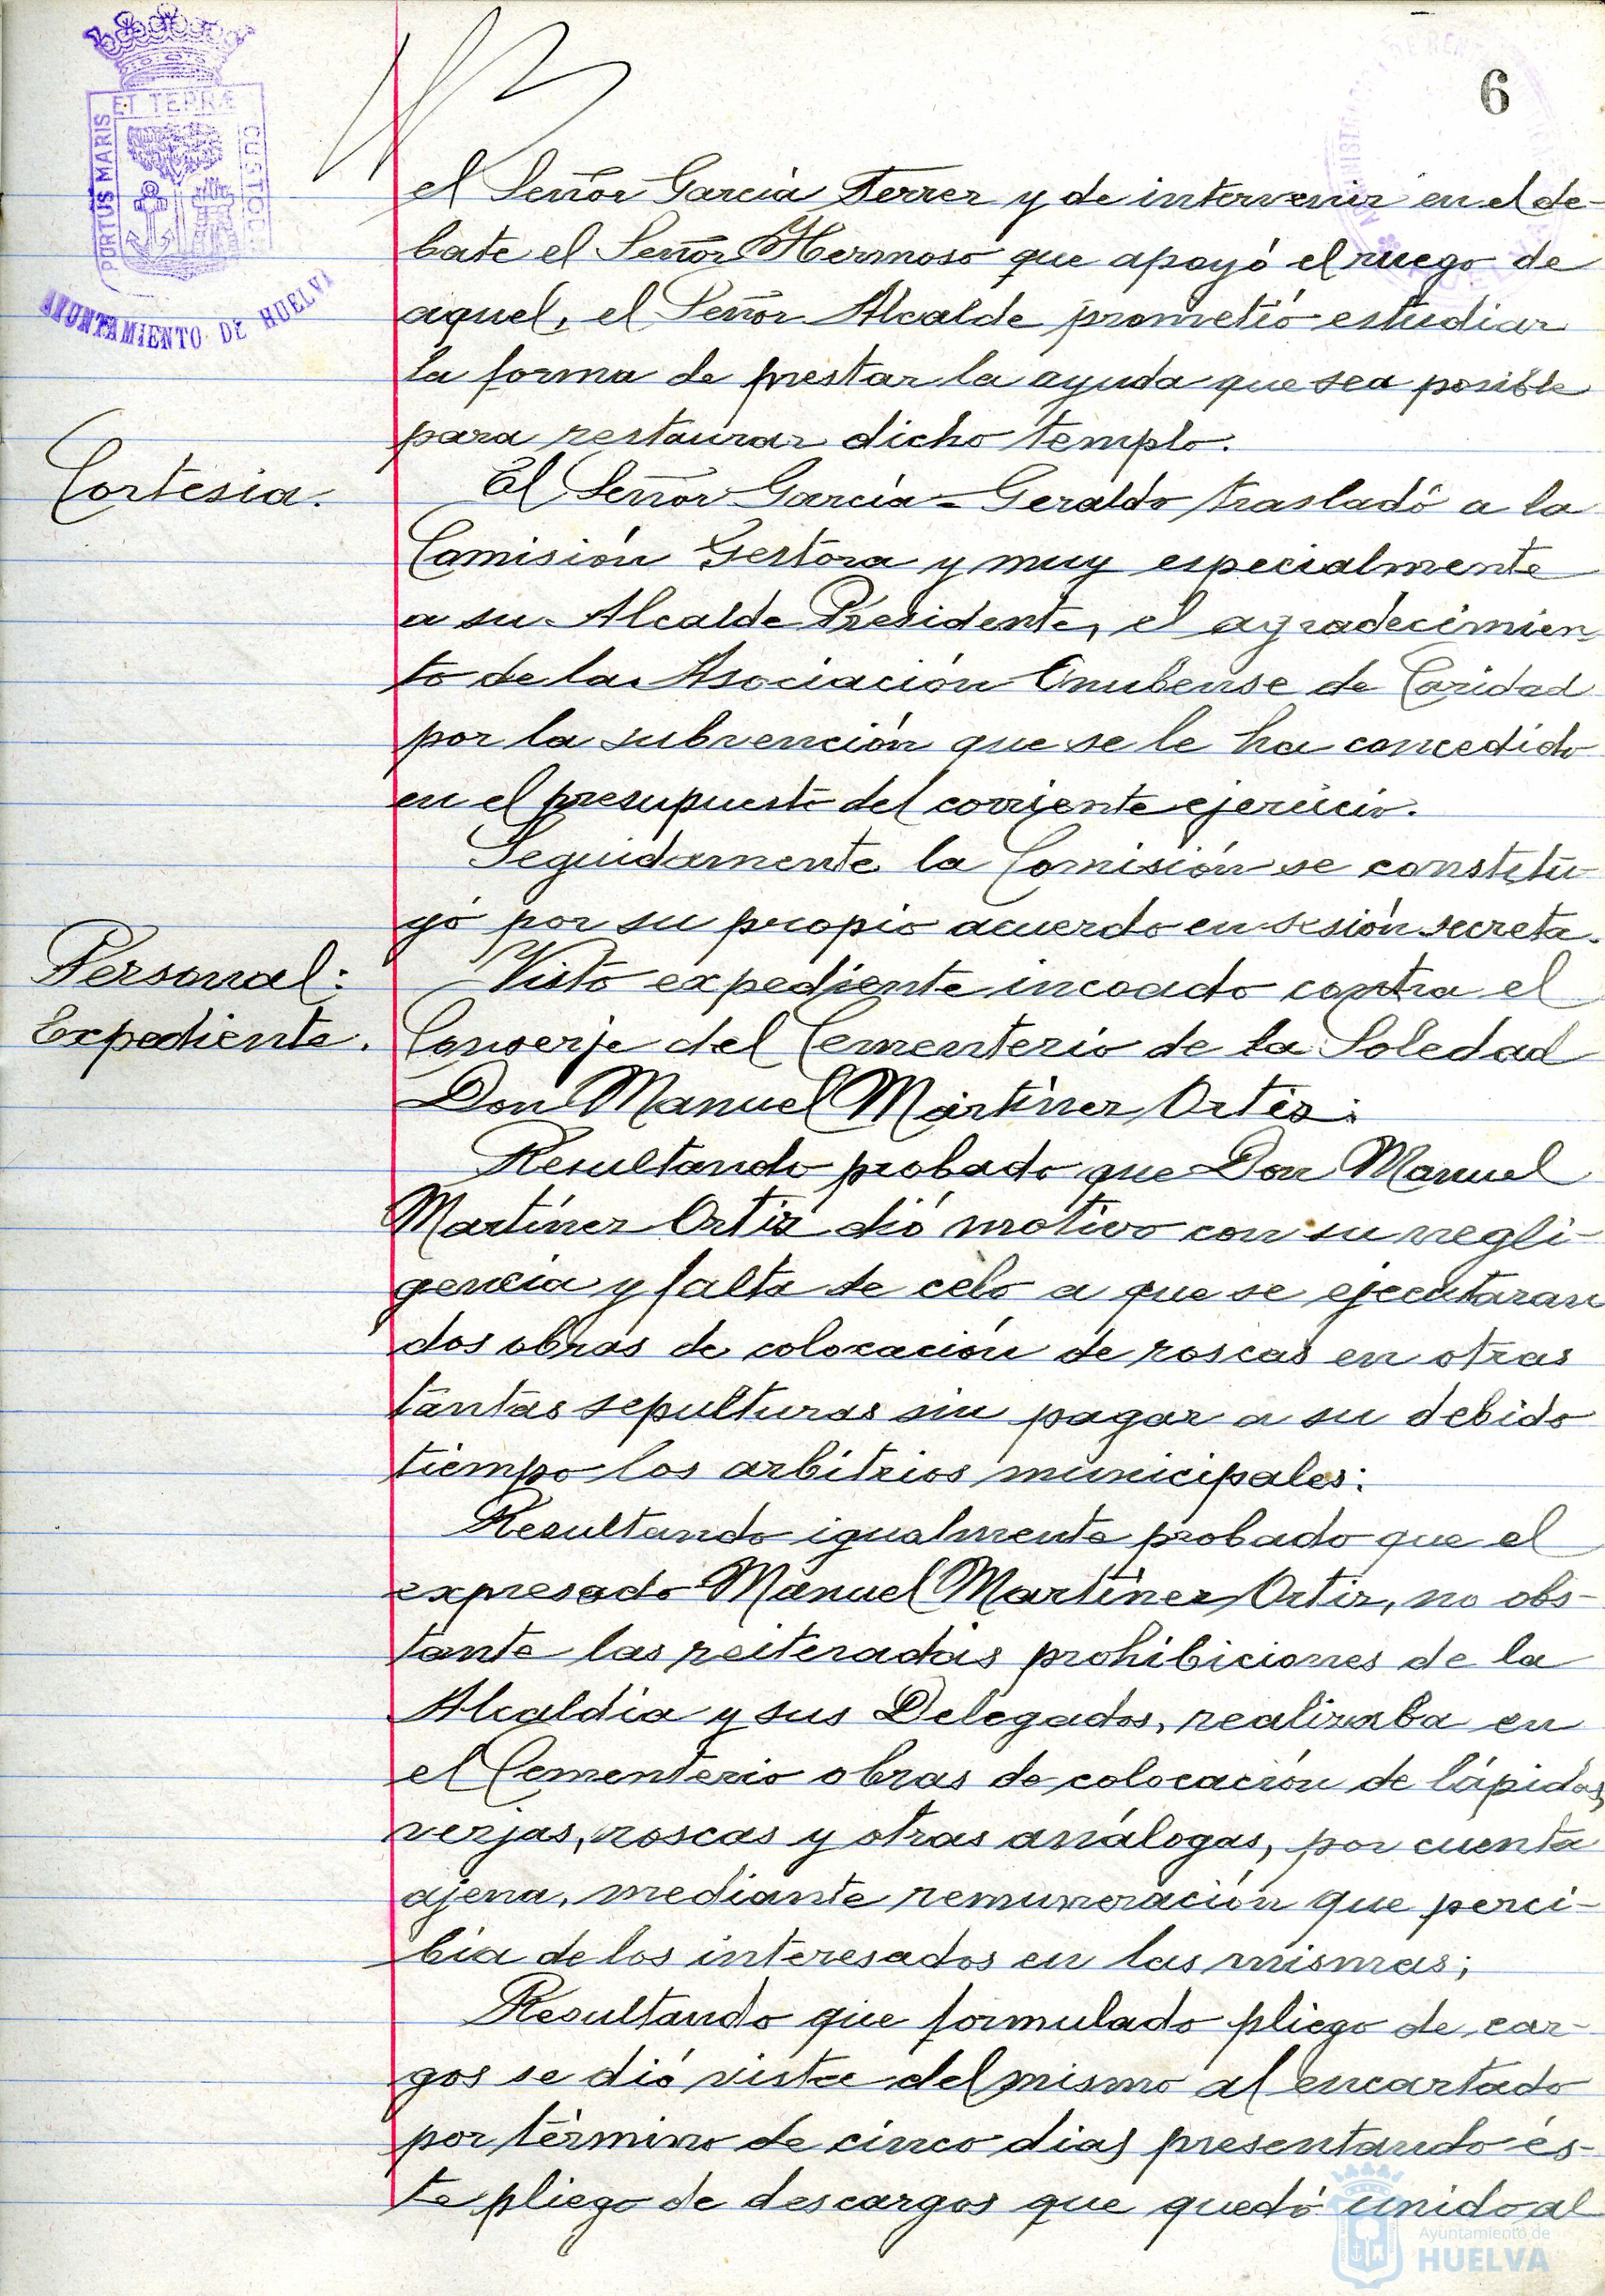 6
ET TERRÆ
PORTUS MARIS
CUSTODI
AYUNTAMIENTO DE HUELVA
el Señor García Ferrer y de intervenir en el de-
bate el Señor Hermoso que apoyó el ruego de
aquel, el Señor Alcalde prometió estudiar
la forma de prestar la ayuda que sea posible
para restaurar dicho templo.
Cortesia.
El Señor García-Geraldo trasladó a la
Comisión Gestora y muy especialmente
a su Alcalde Presidente, el agradecimien
to de la Asociación Onubense de Caridad
por la subvención que se le ha concedido
en el presupuesto del corriente ejercicio.
Seguidamente la Comisión se constitu-
yó por su propio acuerdo en sesión secreta.
Personal:
Expediente.
Visto expediente incoado contra el
Conserje del Cementerio de la Soledad
Don Manuel Martínez Ortiz:
Resultando probado que Don Manuel
Martínez Ortiz dió motivo con su negli-
gencia y falta de celo a que se ejecutaran
dos obras de colocación de roscas en otras
tantas sepulturas sin pagar a su debido
tiempo los arbitrios municipales:
Resultando igualmente probado que el
expresado Manuel Martínez Ortiz, no obs-
tante las reiteradas prohibiciones de la
Alcaldia y sus Delegados, realizaba en
el Cementerio obras de colocación de lápidas,
verjas, roscas y otras análogas, por cuenta
ajena, mediante remuneración que perci-
bia de los interesados en las mismas;
Resultando que formulado pliego de car-
gos se dió vista del mismo al encartado
por término de cinco dias presentando és-
te pliego de descargos que quedó unido al
Ayuntamiento de
HUELVA